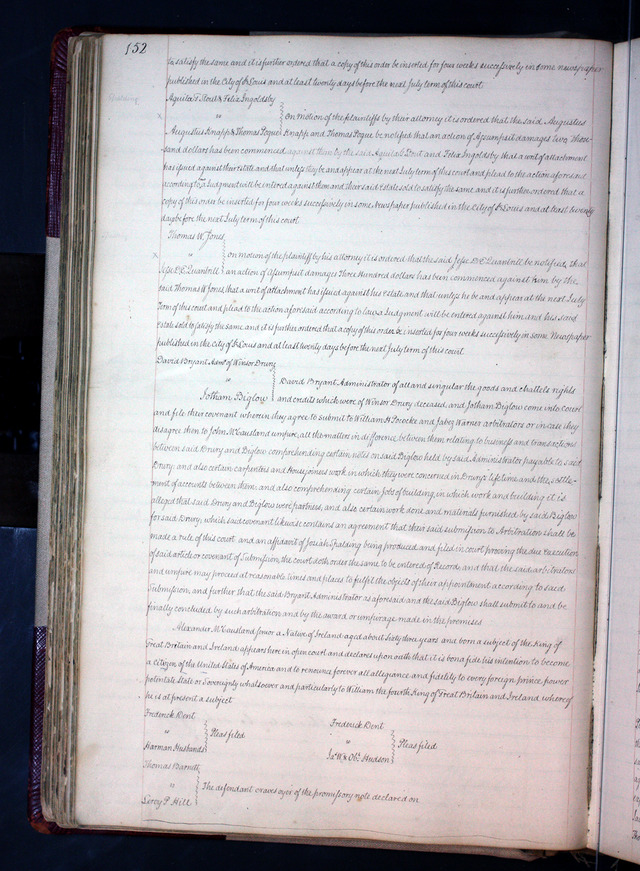 152
to satisfy the same and it is further ordered that a copy of this order be inserted for four weeks successively in some newspaper
published in the City of St Louis and at least twenty days before the next July term of this court
& Felix Ingoldsby
vs
on motion of the plaintiffs by their attorney it is ordered that the said Augustus
Augustus Knapp & Thomas Pogue Knapp and Thomas Pogue be notified that an action of Assumpsit damages Two Thou-
sand dollars has been commenced against them by the said and Felix Ingoldsby that a writ of attachment
has issued against their estate and that unless they be and appear at the next July term of this court and plead to the action aforesaid
according to law Judgment will be entered against them and their said Estate sold to satisfy the same and it is further ordered that a
copy of this order be inserted for four weeks successively in some Newspaper published in the City of St Louis and at least twenty
days before the next July term of this court
Thomas W. Jones
x " on motion of the plaintiff by his attorney it is ordered that the said Jesse D. E. Quantrill be notified, that
Jesse D. E. Quantrill an action of Assumpsit damages Three Hundred dollars has been commenced against him by the
said Thomas W. Jones, that a writ of attachment has issued against his estate and that unless he be and appear at the next July
Term of this court and plead to the action aforesaid according to law, a Judgment will be entered against him and his said
Estate sold to satisfy the same and it is further ordered that a copy of this order be inserted for four weeks successively in some Newspaper
published in the City of St Louis and at least twenty days before the next July term of this court
David Bryant Admr of Winsor Drury
" David Bryant Administrator of all and singular the goods and chattels rights
Jotham Biglow and credits which were of Winsor Drury deceased, and Jotham Biglow come into Court
and file their covenant wherein they agree to submit to William H Pococke and Jabez Warner arbitrators or in case they
disagree then to John McCausland umpire, all the matters in difference between them relating to business and transactions
between said Drury and Biglow comprehending certain notes on said Biglow held by said Administrator payable to said
Drury and also certain carpenters and Housejoiners work in which they were concerned in Drury's lifetime and the settle-
ment of accounts between them and also comprehending certain Jobs of building, in which work and building it is
alleged that said Drury and Biglow were partners, and also certain work done and materials furnished by said Biglow
for said Drury, which said covenant likewise contains an agreement that their said submission to Arbitration shall be
made a rule of this court and an affidavit of Josiah Spalding being produced and filed in court proving the due execution
of said article or covenant of Submission, the court doth order the same to be entered of Record, and that the said arbitrators
and umpire may proceed at reasonable times and places to fulfil the objects of their appointment according to said
Submission, and further that the said Bryant Administrator as aforesaid and the said Biglow shall submit to and be
finally concluded by such arbitration and by the award or umpirage made in the premises
Alexander McCausland senor a Native of Ireland aged about Sixty three years and born a subject of the King of
Great Britain and Ireland appears here in open court and declares upon oath that it is bona fide his intention to become
a citizen of the United States of America and to renounce forever all allegiance and fidelity to every foreign prince power
potentate State or Sovereignty whatsoever and particularly to William the fourth King of Great Britain and Ireland whereof
he is at present a subject
Frederick Dent Frederick Dent
" Pleas filed " Pleas filed
Harman Husbands Hudson
Thomas Barnett
" The defendant craves oyer of the promissory note declared on
Leroy P. Hill